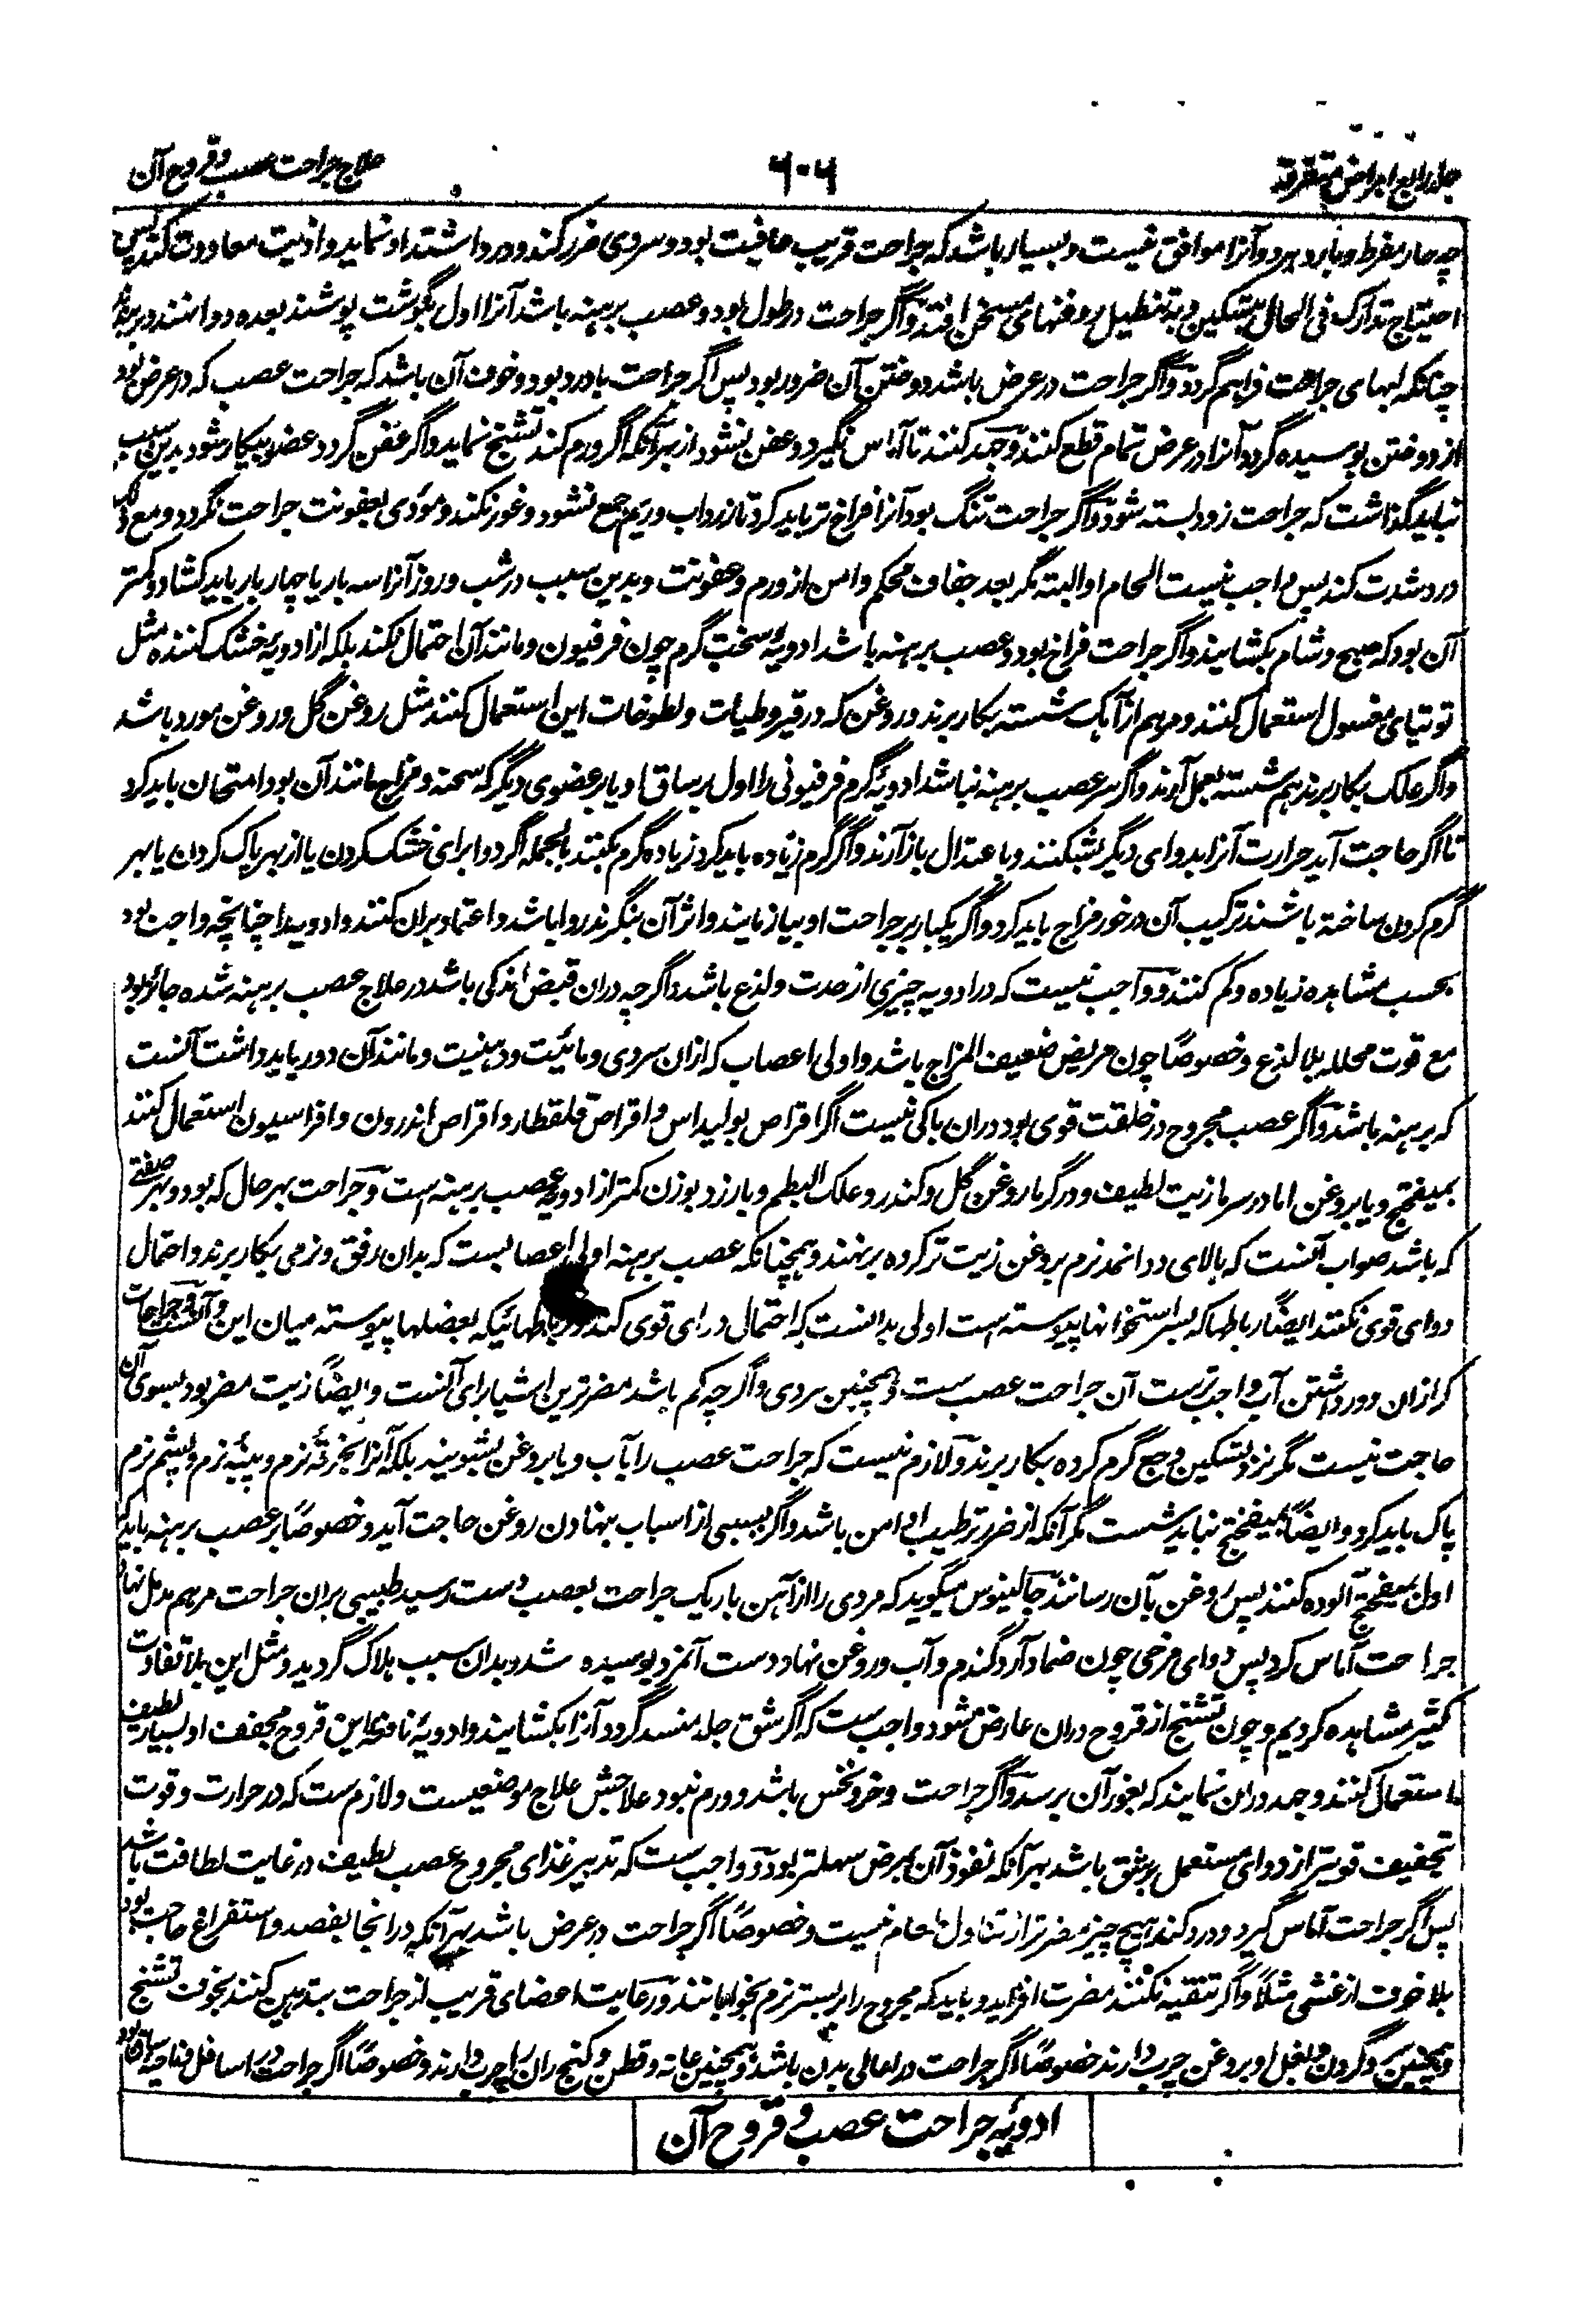 جلد رابع امراض متفرقه
۶۰۶
علاج جراحت عصب و قروح آن
چه حار مفرط و بارد هر دو آنرا موافق نیست و بسیار باشد که جراحت قریب عافیت بود و سردی ضرر کند و درد اشتداد نماید و اذیت معاودت کند پس
احتیاج تدارک فی الحال بتسکین و به تنطیل روغنهای مسخن افتد و اگر جراحت در طول بود و عصب برهنه باشد آنرا اول بگوشت پوشند بعده دوا نهند و بربندند
چنانکه لبهای جراحت فراهم گردد و اگر جراحت در عرض باشد دوختن آن ضرور بود پس اگر جراحت با درد بود و خوف آن باشد که جراحت عصب که در عرض بود
از دوختن بوسیده گردد آنرا در عرض تمام قطع کنند و جهد کنند تا آماس نگیرد و عفن نشود از بهر آنکه اگر ورم کند تشنج نماید و اگر عفن گردد عضو بیکار شود بدین سبب
نباید گذاشت که جراحت زود بسته شود و اگر جراحت تنگ بود آنرا فراخ تر باید کرد تا زرداب و ریم جمع نشود و غور نکند و مؤدی بعفونت جراحت نگردد و مع ذلک
درد شدت کند پس واجب نیست الحام او البته مگر بعد جفاف محکم و امن از ورم و عفونت و بدین سبب در شب و روز آنرا سه بار یا چهار بار باید کشاد و کمتر
آن بود که صبح و شام بکشایند و اگر جراحت فراخ بود و عصب برهنه باشد ادویهٔ سخت گرم چون فرفیون و مانند آن احتمال نکند بلکه از ادویه خشک کننده مثل
توتیای مغسول استعمال کنند و مرهم از آهک شسته بکار برند و روغن که در قیروطیات و لطوخات این استعمال کنند مثل روغن گل و روغن مورد باشد
و اگر علک بکار برند هم شسته بعمل آرند و اگر سر عصب برهنه نباشد ادویهٔ گرم فرفیونی را اول بر ساق او یا بر عضوی دیگر که سحنه و مزاج مانند آن بود امتحان باید کرد
تا اگر حاجت آید حرارت آنرا بدوای دیگر بشکنند و باعتدال باز آرند و اگر گرم زیاده باید کرد زیاده گرم بکنند بالجمله اگر دوا برای خشک کردن یا از بهر پاک کردن یا بهر
گرم کردن ساخته باشند ترکیب آن در خور مزاج باید کرد و اگر یکبار بر جراحت او بیازمایند و اثر آن بنگرند روا باشد و اعتماد بران کنند و ادویه را چنانچه واجب بود
بحسب مشاهده زیاده و کم کنند و واجب نیست که در ادویه چیزی از حدت و لذع باشد و اگرچه دران قبض اندکی باشد در علاج عصب برهنه شده جائز بود
مع قوت محلله بلا لذع و خصوصاً چون مریض ضعیف المزاج باشد و اولی اعصاب که ازان سردی و مائیت و دهنیت و مانند آن دور باید داشت آنست
که برهنه باشد و اگر عصب مجروح در خلقت قوی بود دران باکی نیست اگر اقراص بولیداس و اقراص قلقطار و اقراص اندرون و افراسیون استعمال کنند
بمیفختج و یا بروغن اما در سرما زیت لطیف و در گرما روغن گل و کندر و علک البطم و بارزد بوزن کمتر از ادویه عصب برهنه است و جراحت بهر حال که بود و بهر صفتے
که باشد صواب آنست که بالای دوا نمد نرم بروغن زیت تر کرده برنهند و همچنانکه عصب برهنه اولی اعصابست که بدان رفق و نرمی بکار برند و احتمال
دوای قوی نکنند ایضاً رباطها که بسر استخوانها پیوسته است اولی بدانست که احتمال دوای قوی کند و رباطهائیکه بعضلها پیوسته میان این و آنست و جراحات
که ازان دور داشتن آب واجب ترست آن جراحت عصب ست و همچنین سردی و اگرچه کم باشد مضر ترین اشیا برای آنست و ایضاً زیت مضر بود بسوی آن
حاجت نیست مگر نزد تسکین وجع گرم کرده بکار برند و لازم نیست که جراحت عصب را بآب و یا بروغن بشویند بلکه آنرا بخرقهٔ نرم و پنبهٔ نرم و پشم نرم
پاک باید کرد و ایضاً بمیفختج نباید شست مگر آنکه از ضرر ترطیب او امن باشد و اگر بسببی از اسباب بنهادن روغن حاجت آید و خصوصاً بر عصب برهنه باید که
اول بمیفختج آلوده کنند پس روغن بآن رسانند جالینوس میگوید که مردی را از آهن باریک جراحت بعصب دست رسید طبیبی بران جراحت مرهم مدمل نهاد
جراحت آماس کرد پس دوای مرخی چون ضماد آرد گندم و آب و روغن نهاد دست آنمرد بوسیده شد و بدان سبب هلاک گردید و مثل این بلا تفاوت
کثیر مشاهده کردیم و چون تشنج از قروح دران عارض شود واجب ست که اگر شق جلد منسد گردد آنرا بکشایند و ادویهٔ نافعه این قروح مجفف او بسیار لطیف
استعمال کنند و جهد دران نمایند که بغور آن برسد و اگر جراحت وخز و نخس باشد و ورم نبود علاجش علاج موضعیست و لازم ست که در حرارت و قوت
تجفیف قویتر از دوای مستعمل بر شق باشد بهر آنکه نفوذ آن بمرض سهلتر بود و واجب ست که تدبیر غذای مجروح عصب لطیف در غایت لطافت باشد
پس اگر جراحت آماس گیرد و درد کند هیچ چیز مضر تر از تناول طعام نیست و خصوصاً اگر جراحت در عرض باشد بهر آنکه در انجا بفصد و استفراغ حاجت بود
بلا خوف از غشی مثلاً و اگر تنقیه نکنند مضرت افزاید و باید که مجروح را بر بستر نرم بخوابانند و رعایت اعضای قریب از جراحت بتدهین کنند بخوف تشنج
و همچنین سر و گردن و بغل او بروغن چرب دارند خصوصاً اگر جراحت در اعالی بدن باشد و همچنین عانه و قطن و کنج ران را چرب دارند و خصوصاً اگر جراحت در اسافل
ادویهٔ جراحت عصب و قروح آن